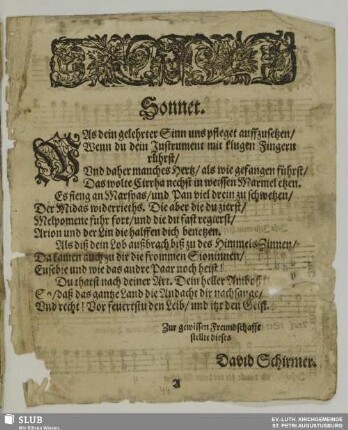 Sonnet.
WAs dein gelehrter Sinn uns pfleget auffzusetzen/
Wenn du dein Instrument mit klugen Fingern
rührst/
Vnd daher manches Hertz/ als wie gefangen führst/
Das wolte Cirrha nechst in weissen Marmel etzen.
Es fieng an Marsyas/ und Pan viel drein zu schwetzen/
Der Midas widerrieths. Die aber die du zierst/
Melpomene fuhr fort/ und die du fast regierst/
Arion und der Lin die halffen dich benetzen.
Als diß dein Lob außbrach biß zu des Himmels Zinnen/
Da kamen auch zu dir die frommen Sioninnen/
Eusebie und wie das andre Paar noch heist!
Du thatst nach deiner Art. Dein heller Amboß
So/ daß das gantze Land die Andacht dir nachsange/
Vnd recht! Vor feuerstu den Leib/ und itzt den Geist.
Zur gewissen Freundschafft
stellte dieses
David Schirmer.
A
SLUB
Wir führen Wissen.
EV.-LUTH. KIRCHGEMEINDE
ST. PETRI AUGUSTUSBURG